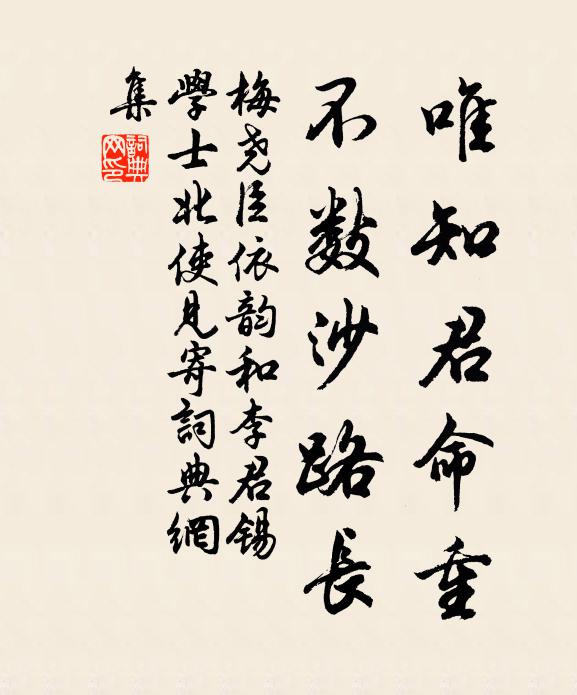 唯知君命重
不數沙路長
梅堯臣依韵和李君錫
學士北使見寄詞典網
集
詞典
网印